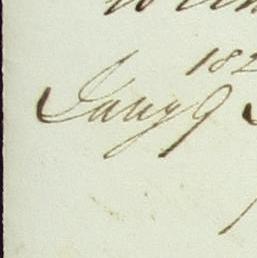 182
Jany 9